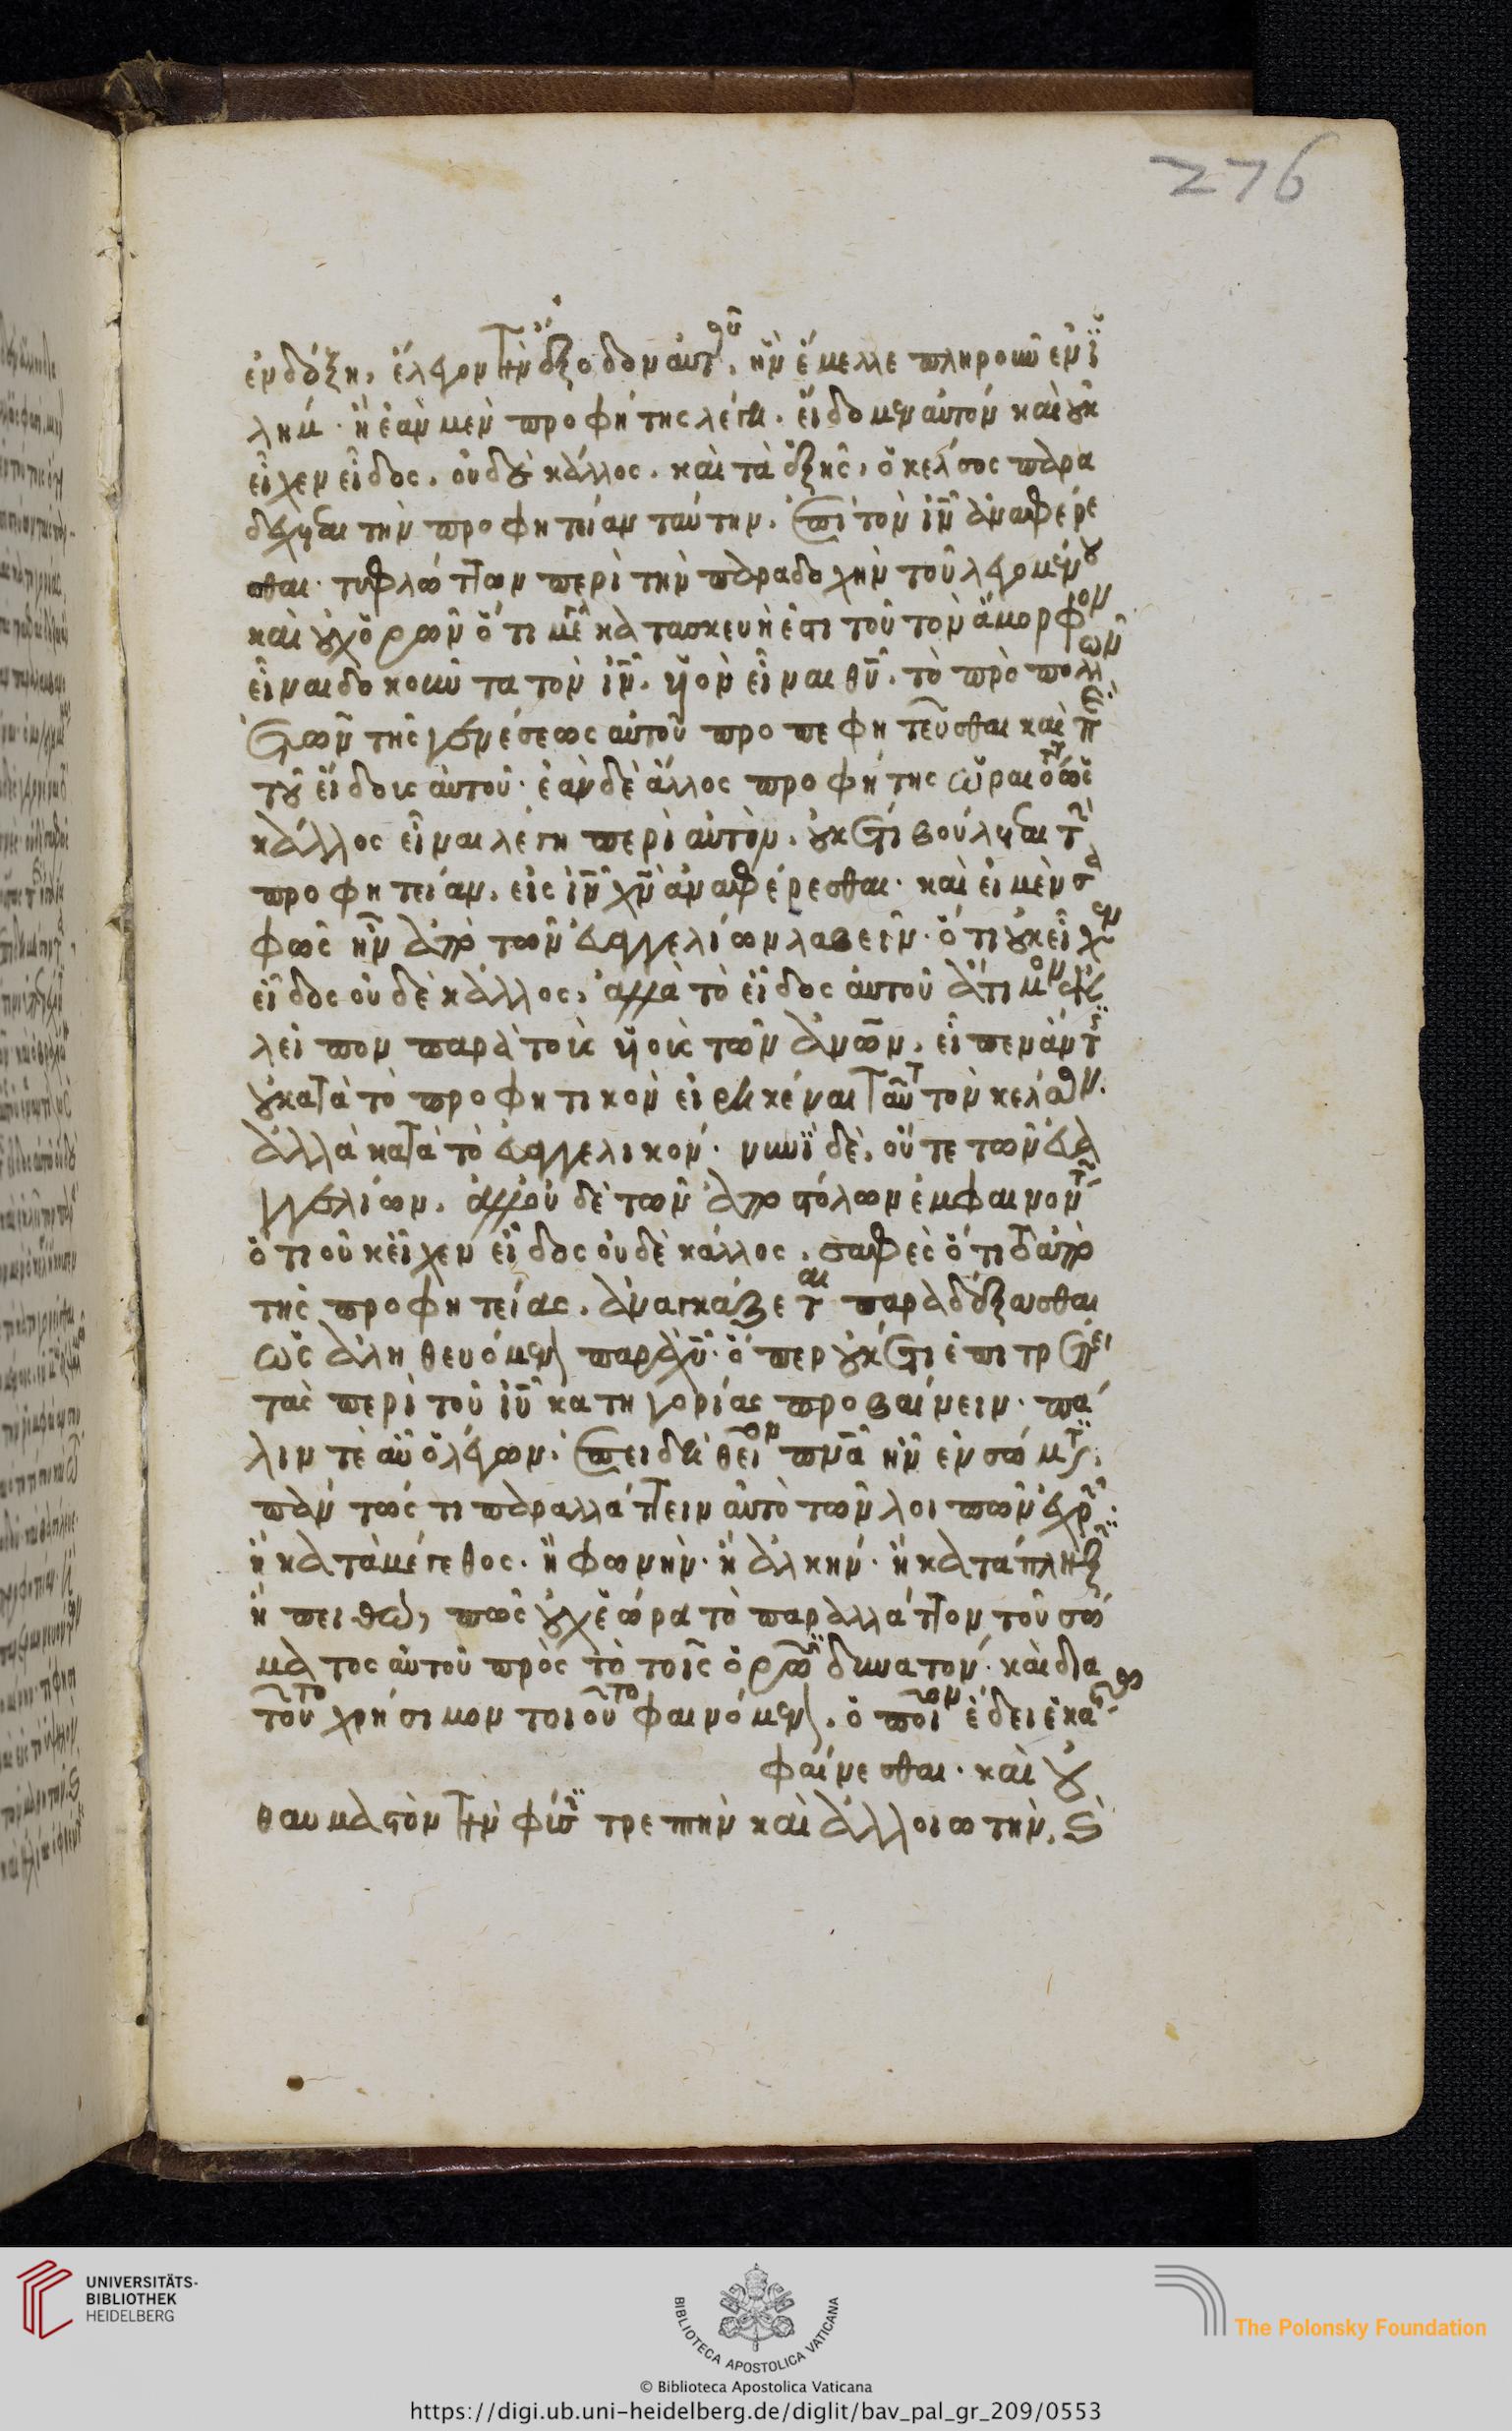 276
ἐν δόξῃ, ἔλεγον τὴν ἔξοδον αὐτοῦ, ἣν ἔμελλε πληροῦν ἐν ἱ
λημ· ἢ ἐὰν μὲν προφήτης λέγῃ· εἴδομεν αὐτὸν καὶ οὐκ
εἶχεν εἶδος, οὐδὲ κάλλος. καὶ τὰ ἑξῆς, ὁ κέλσος παρα
δέχεται τὴν προφητείαν ταύτην, ἐπὶ τὸν ἰν ἀναφέρε
σθαι· τυφλώττων περὶ τὴν παραδοχὴν τοῦ λεγομένου
καὶ οὐχ ὁρῶν ὅτι μεγ κατασκευή ἐστι τοῦ τὸν ἄμορφον
εἶναι δοκοῦντα τὸν ἰν, υἱὸν εἶναι θυ, τὸ πρὸ πολλῶν
ἐτῶν τῆς γενέσεως αὐτοῦ προπεφητεῦσθαι καὶ περὶ
τοῦ εἴδους αὐτοῦ· ἐὰν δὲ ἄλλος προφήτης ὡραιότητα καὶ
κάλλος εἶναι λέγῃ περὶ αὐτὸν, οὐκέτι βούλεται τὴν
προφητείαν, εἰς ἰν χν ἀναφέρεσθαι· καὶ εἰ μὲν σα
φῶς ἦν ἀπὸ τῶν εὐαγγελίων λαβεῖν· ὅτι οὐκ εἶχεν
εἶδος οὐδὲ κάλλος, ἀλλὰ τὸ εἶδος αὐτοῦ ἄτιμον ἐκ
λεῖπον παρὰ τοὺς υἱοὺς τῶν ἀνων, εἶπεν ἄν τις
οὐ κατὰ τὸ προφητικὸν εἰρηκέναι ταῦτ τὸν κέλσον.
ἀλλὰ κατὰ τὸ εὐαγγελικόν· νυνὶ δὲ, οὔτε τῶν εὐα
γγελίων, ἀλλ' οὐδὲ τῶν ἀποστόλων ἐμφαινόντων
ὅτι οὐκ εἶχεν εἶδος οὐδὲ κάλλος, σαφὲς ὅτι τὸ ἀπὸ
τῆς προφητείας, ἀναγκάζεται παραδέξασθαι
ὡς ἀληθευόμενον παρὰ χυ· ὅπερ οὐκέτι ἐπιτρέπει
τὰς περὶ τοῦ ιυ κατηγορίας προβαίνειν· πά
λιν τε αὖ ὁ λέγων, ἐπειδὴ θεῖον πνα ἦν ἐν σώματι,
πάντως τι παραλλάττειν αὐτὸ τῶν λοιπῶν ἐχρῆν·
ἢ κατὰ μέγεθος· ἢ φωνήν· ἢ ἀλκήν· ἢ κατάπληξιν
ἢ πειθώ, πῶς οὐχ ἑώρα τὸ παραλλάττον τοῦ σώ
ματος αὐτοῦ πρὸς τὸ τοῖς ὁρῶσι δυνατόν· καὶ δια
τοῦτο χρήσιμον τοιοῦτο φαινόμενον, ὁποῖον ἔδει ἑκάστῳ
φαίνεσθαι· καὶ οὐ
θαυμαστὸν τὴν φύσει τρεπτὴν καὶ ἀλλοιωτήν, καὶ
UNIVERSITÄTS-
BIBLIOTHEK
HEIDELBERG
BIBLIOTECA APOSTOLICA VATICANA
© Biblioteca Apostolica Vaticana
The Polonsky Foundation
https://digi.ub.uni-heidelberg.de/diglit/bav_pal_gr_209/0553